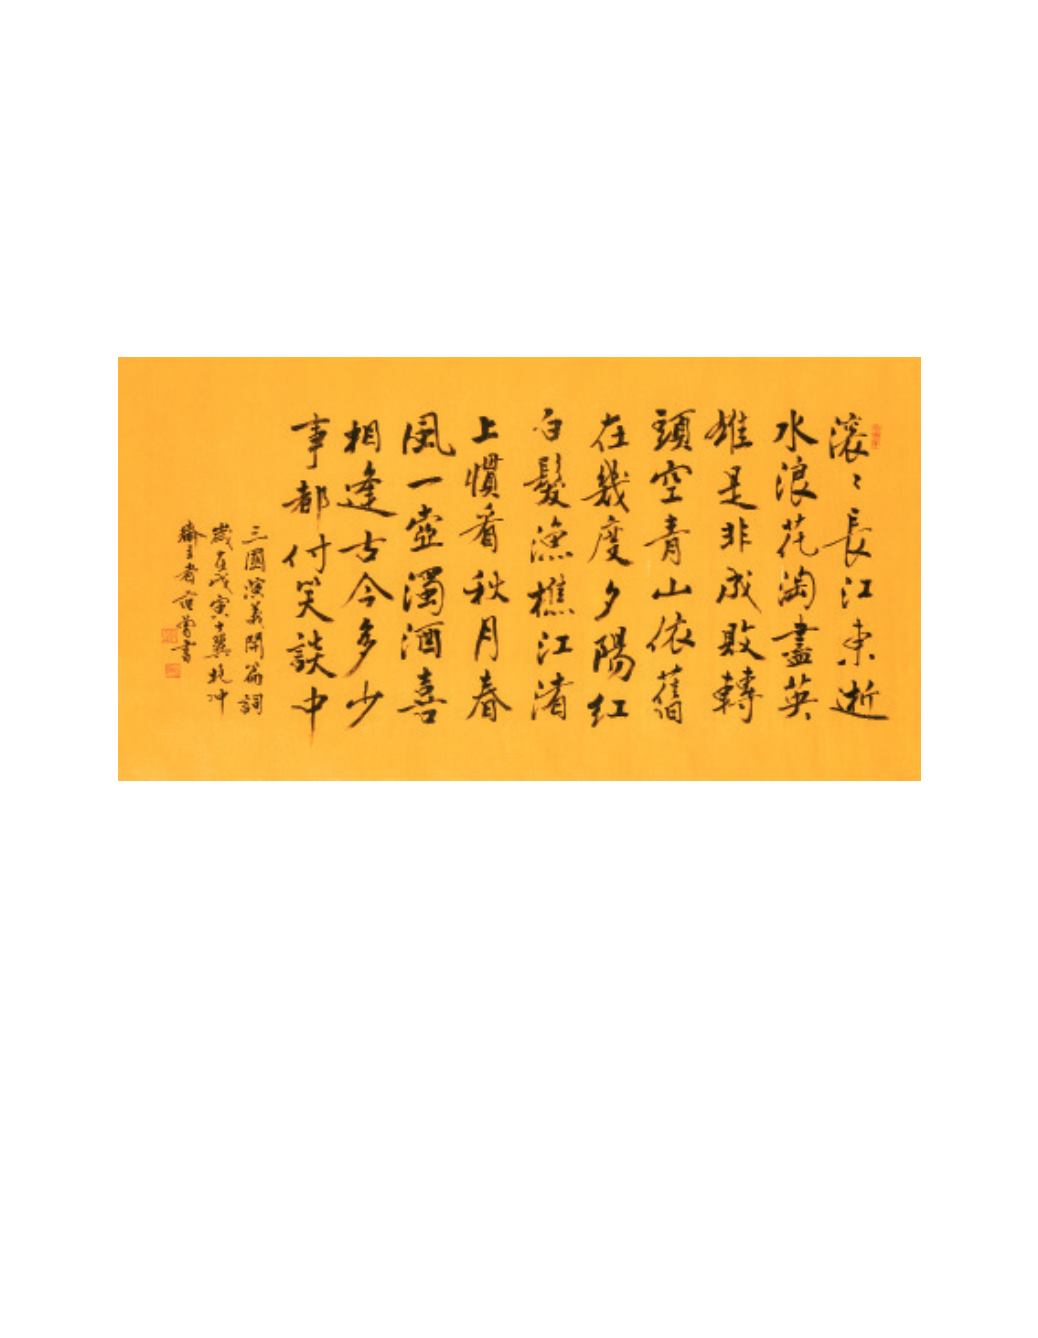 滚〻長江東逝
水浪花淘盡英
雄是非成敗轉
頭空青山依舊
在幾度夕陽紅
白髮漁樵江渚
上慣看秋月春
風一壺濁酒喜
相逢古今多少
事都付笑談中
三國演義開篇詞
歲在戊寅十翼抱冲
齋主者范曾書